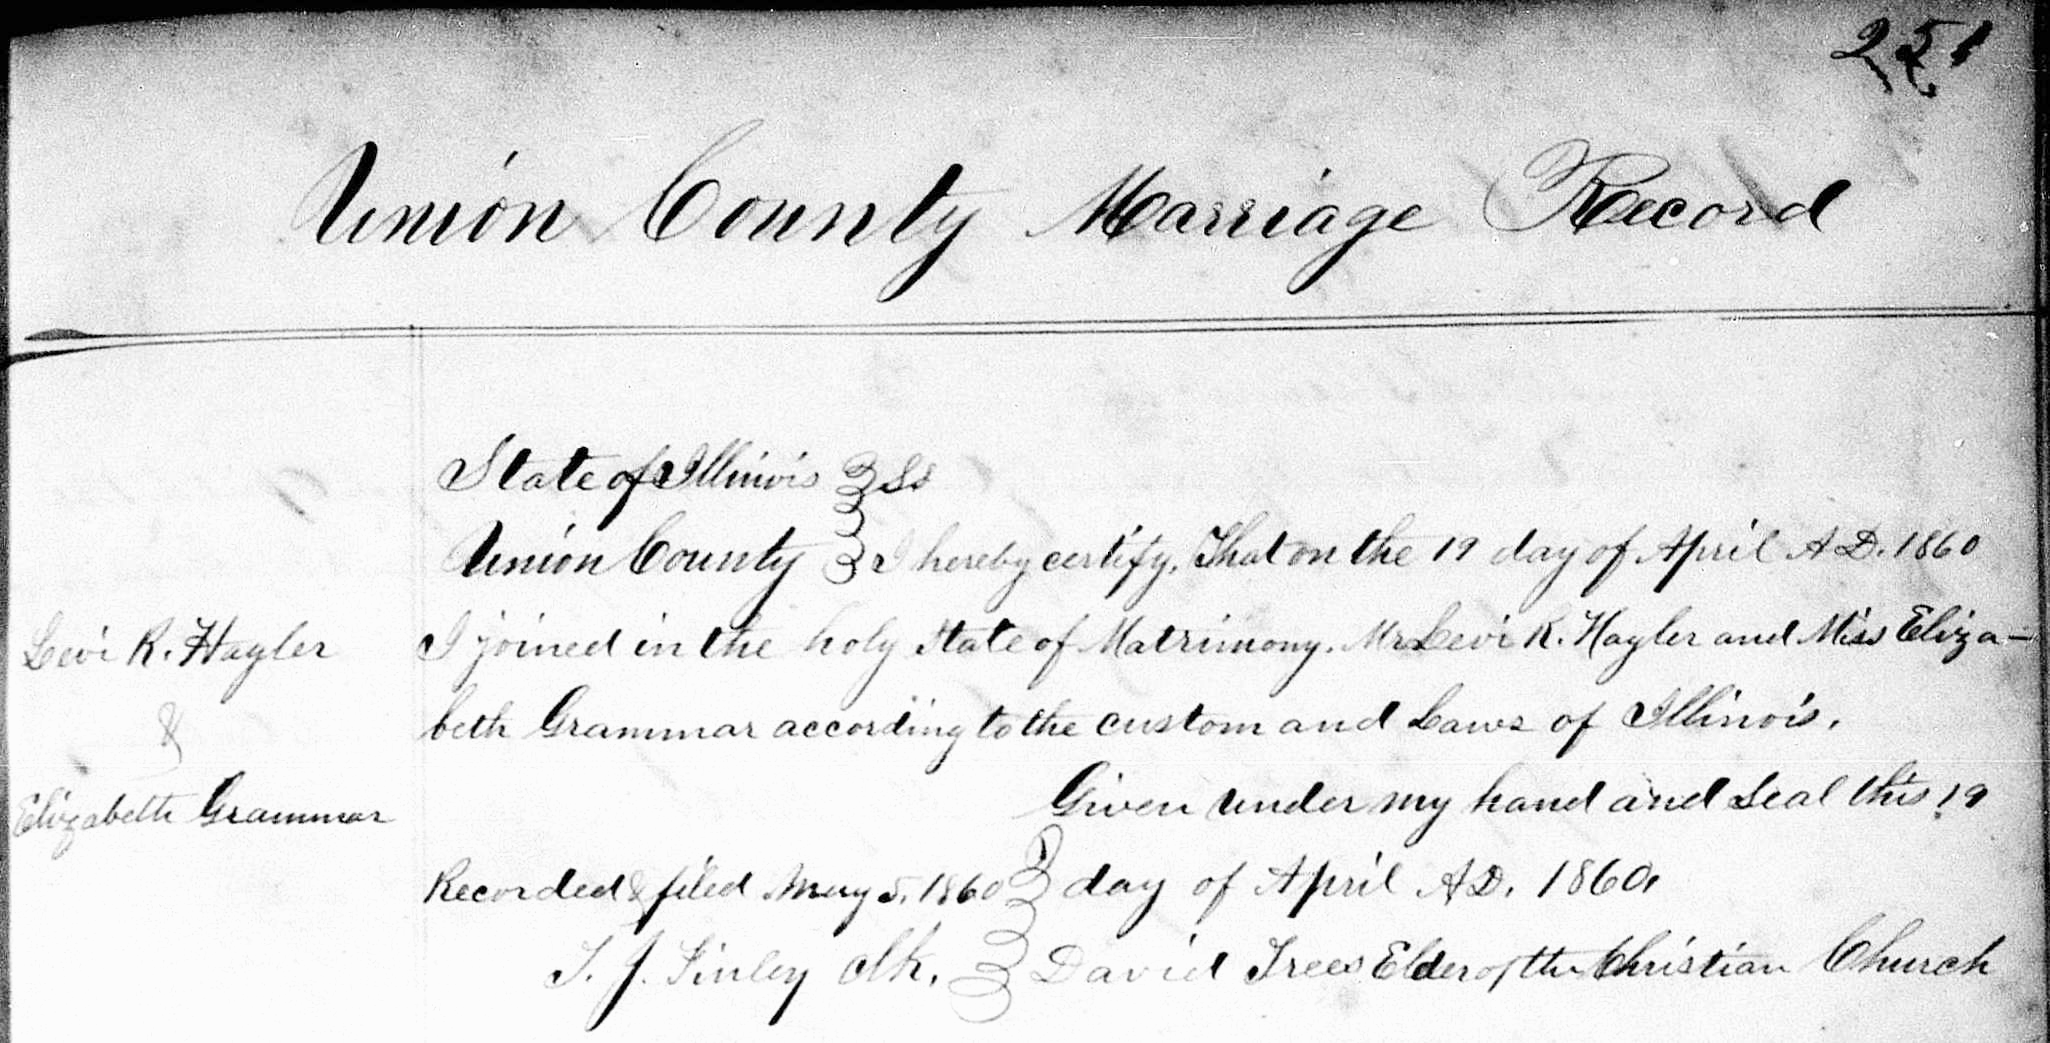 251
Union County Marriage Record
State of Illinois } Ss
Union County } I hereby certify, That on the 19 day of April A.D. 1860
Levi R. Hagler
I joined in the holy state of Matrimony. Mr Levi R. Hagler and Miss Eliza-
&
beth Grammar according to the custom and Laws of Illinois.
Elizabeth Grammar
Given under my hand and Seal this 19
Recorded & filed May 5, 1860 } day of April A.D. 1860,
T. J. Finley Clk. } David Trees Elder of the Christian Church